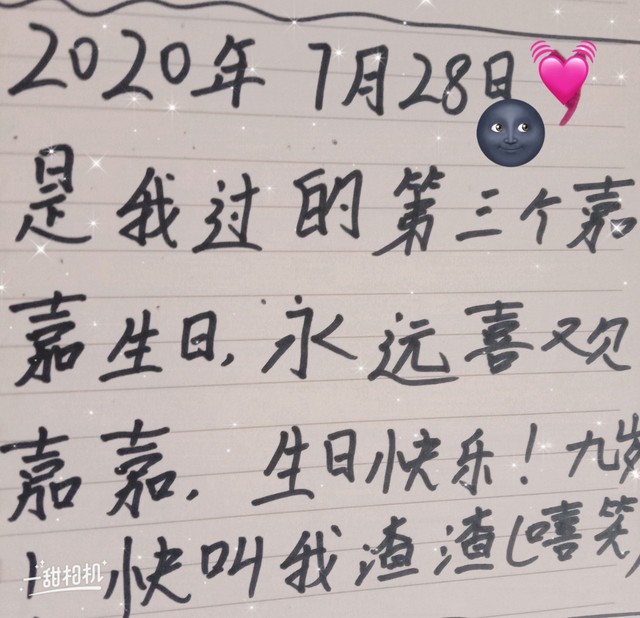 2020年 7月28日
是我过的第三个嘉
嘉生日,永远喜欢
嘉嘉.生日快乐!九岁
快叫我渣渣(嘻笑)
甜相机